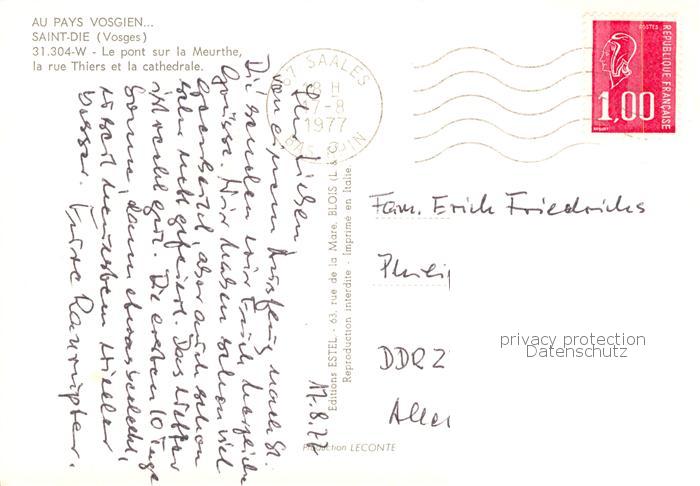 AU PAYS VOSGIEN...
SAINT-DIE (Vosges)
31.304-W - Le pont sur la Meurthe,
la rue Thiers et la cathedrale.
67 SAALES
18 H
17-8
1977
BAS RHIN
POSTES
REPUBLIQUE FRANÇAISE
1,00
17.8.77
Ihr Lieben,
von einem Ausflug nach St.
Die senden wir Euch herzliche
Grüsse. Wir haben schon viel
gearbeitet, aber auch schon
schön gefeiert. Das Wetter
ist recht gut. Die ersten 10 Tage
Sonne, dann etwas schlecht,
besser. Eure
Editions ESTEL - 63, rue de la Mare, BLOIS (L. &
Reproduction interdite - Imprimé en Italie
Production LECONTE
Fam. Erich Friedrichs
DDR Z
privacy protection
Datenschutz